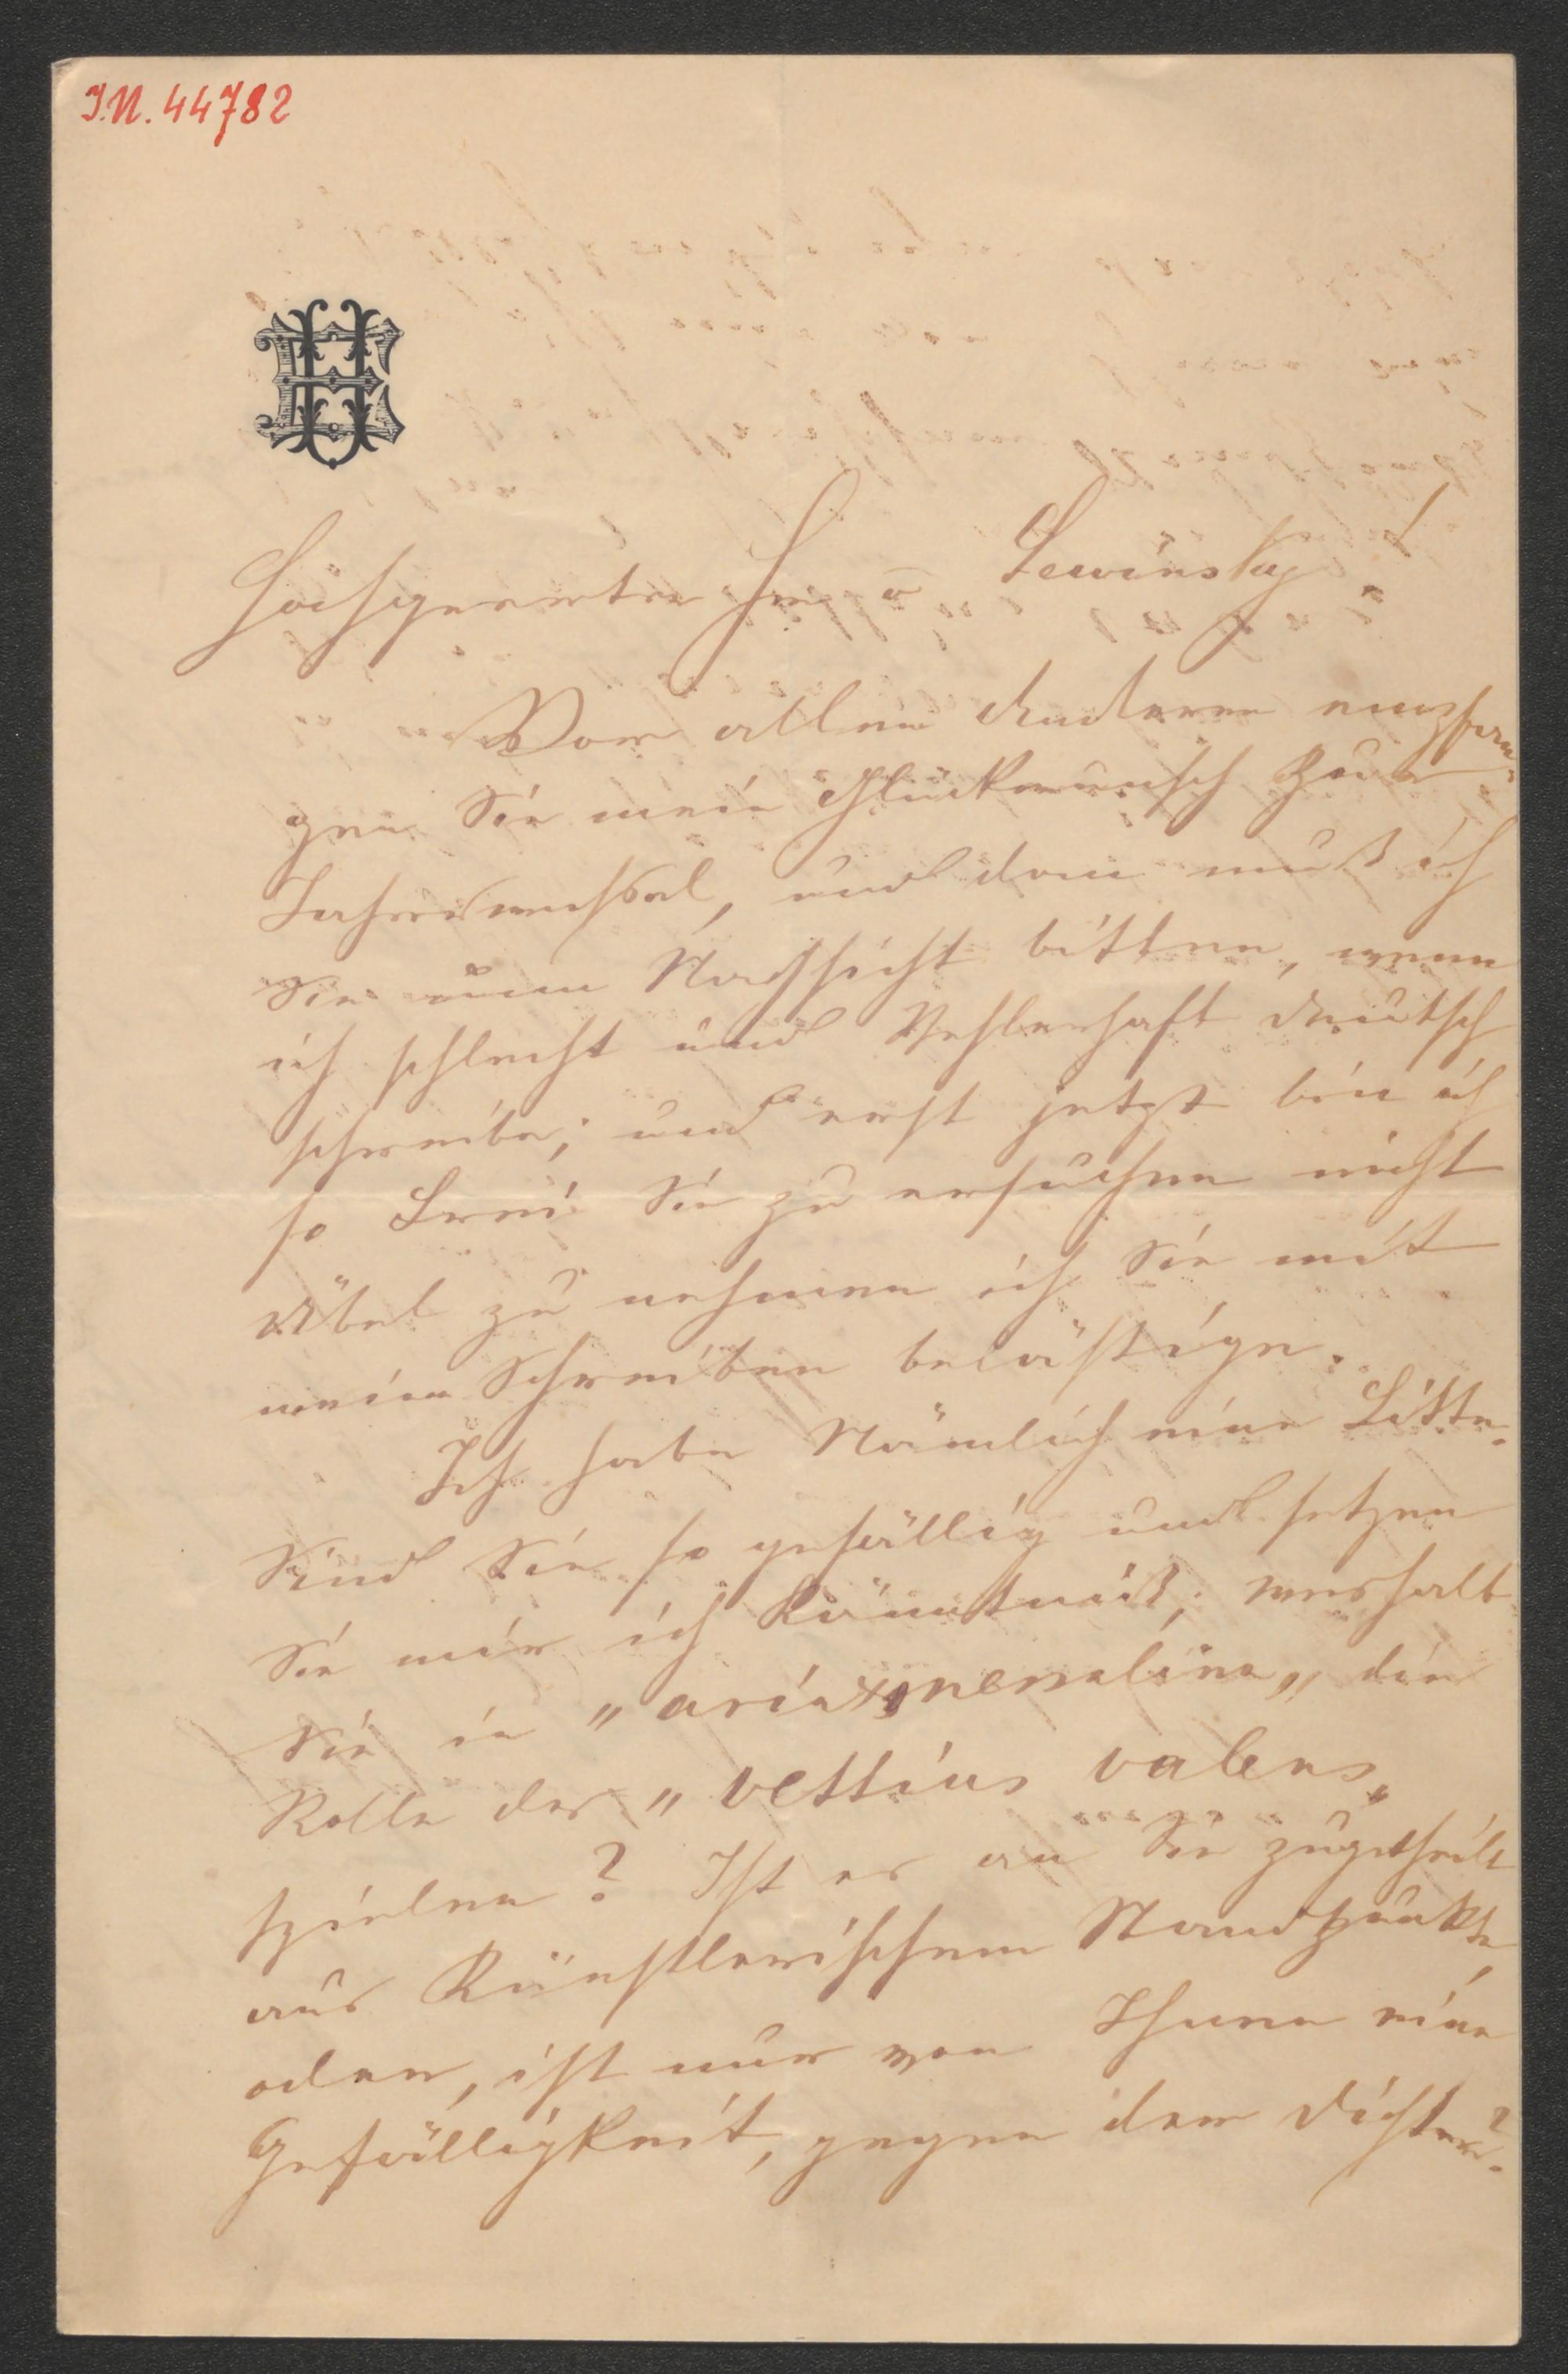 I.N. 44782
EH
Hochgeerter Her v Lewinsky!
Vor allem Anderen empfan-
gen Sie mein Glückwunsch zum
Jahreswechsel, und dann muß ich
Sie umm Nachsicht bitten, wenn
ich schlecht und Vehlerhaft deutsch
schreibe; und erst jetzt bin ich
so Frei Sie zu ersuchen nicht
Übel zu nehmen ich Sie mit
meinen Schreiben belästige.
Ich habe Nämlich eine Bitte.
Sind Sie so gefällig und setzen
Sie mir ich Känntniß; weshalb
Sie in „aria messaline„ die
Rolle des „vettius valens„
spielen? Ist es an Sie zugetheilt
aus Künstlerischem Standpunkte,
oder, ist nur von Ihnen eine
Gefälligkeit, gegen den Dichter?